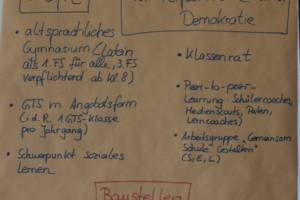 Demokratie
• altsprachliches
Gymnasium (Latein
als 1. FS für alle, 3. FS
verpflichtend ab Kl. 8)
• GTS in Angebotsform
(i.d.R. 1 GTS-Klasse
pro Jahrgang)
• Schwerpunkt soziales
Lernen
• Klassenrat
• Peer-to-peer-
Learning: Schülercoaches,
Medienscouts, Paten,
Lerncoaches
• Arbeitsgruppe „Gemeinsam
Schule Gestalten"
(S, E, L)
Baustellen